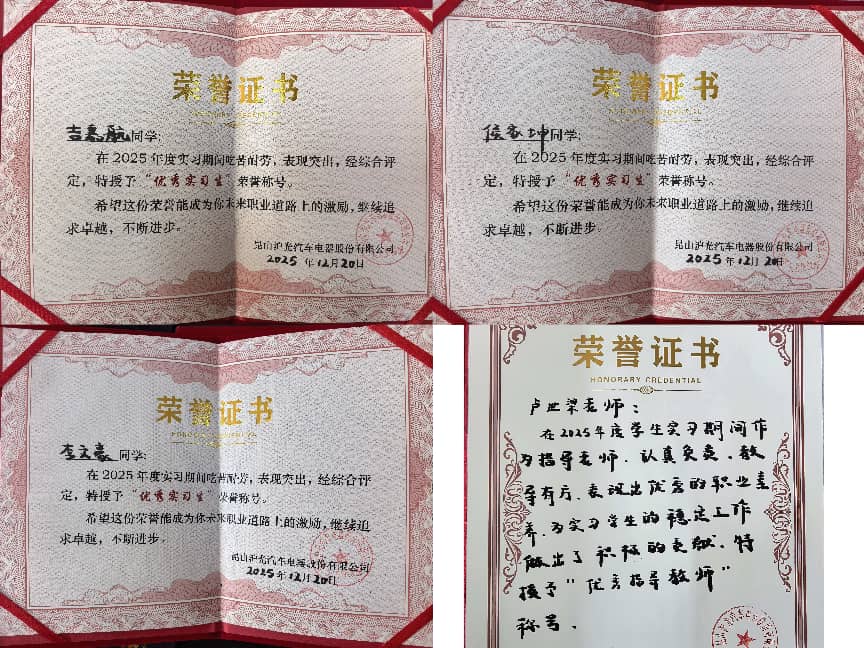 荣誉证书
吉嘉航同学:
在2025年度实习期间吃苦耐劳,表现突出,经综合评
定,特授予“优秀实习生”荣誉称号。
希望这份荣誉能成为你未来职业道路上的激励,继续追
求卓越,不断进步。
昆山沪光汽车电器股份有限公司
2025年12月20日
荣誉证书
HONORARY CREDENTIAL
侯家坤同学:
在2025年度实习期间吃苦耐劳,表现突出,经综合评
定,特授予“优秀实习生”荣誉称号。
希望这份荣誉能成为你未来职业道路上的激励,继续追
求卓越,不断进步。
昆山沪光汽车电器股份有限公司
2025年12月20日
荣誉证书
李文豪同学:
在2025年度实习期间吃苦耐劳,表现突出,经综合评
定,特授予“优秀实习生”荣誉称号。
希望这份荣誉能成为你未来职业道路上的激励,继续追
求卓越,不断进步。
昆山沪光汽车电器股份有限公司
2025年12月20日
荣誉证书
HONORARY CREDENTIAL
卢世梁老师:
在2025年度学生实习期间作
为指导老师、认真负责、教
导有方、表现出优秀的职业素
养、为实习学生的稳定工作
做出了积极的贡献、特
授予“优秀指导教师”
称号、